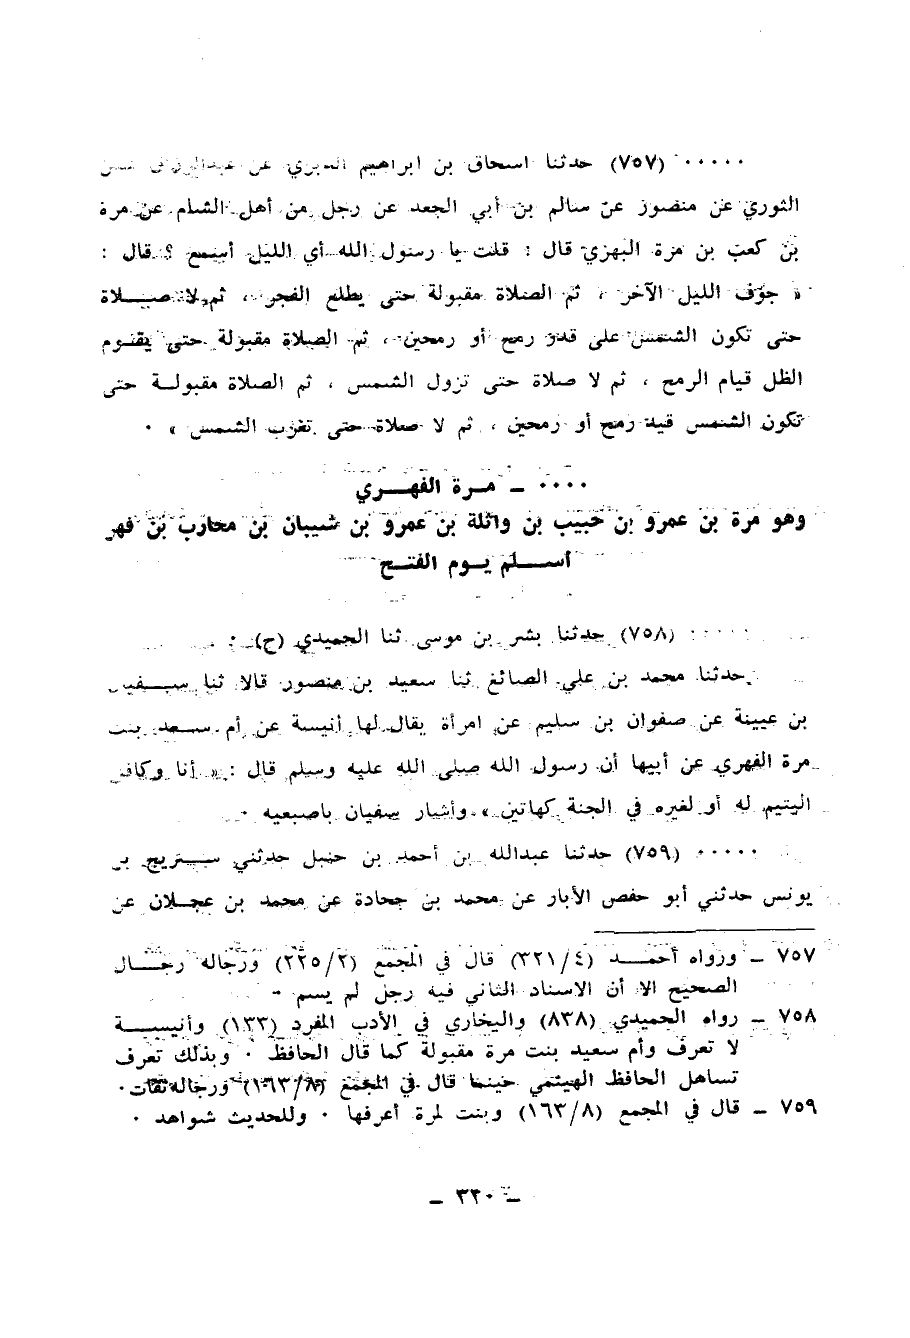 ٠٠٠٠٠ (٧٥٧) حدثنا اسحاق بن ابراهيم الدبري عن عبدالرزاق عن
الثوري عن منصور عن سالم بن أبي الجعد عن رجل من أهل الشام عن مرة
بن كعب بن مرة البهزي قال : قلت يا رسول الله أي الليل أسمع ؟ قال :
« جوف الليل الآخر ، ثم الصلاة مقبولة حتى يطلع الفجر ، ثم لا صــلاة
حتى تكون الشمس على قدر رمح أو رمحين ، ثم الصلاة مقبولة حتى يقــوم
الظل قيام الرمح ، ثم لا صلاة حتى تزول الشمس ، ثم الصلاة مقبولــة حتى
تكون الشمس قيد رمح أو رمحين ، ثم لا صلاة حتى تغرب الشمس » ٠
٠٠٠٠ ــ مـرة الفهـــري
وهو مرة بن عمرو بن حبيب بن واثلة بن عمرو بن شيبان بن محارب بن فهر
أســـلم يـوم الفتـح
٠٠٠٠٠ (٧٥٨) حدثنا بشر بن موسى ثنا الحميدي (ح) :
حدثنا محمد بن علي الصائغ ثنا سعيد بن منصور قالا ثنا سـفيـ
بن عيينة عن صفوان بن سليم عن امرأة يقال لها أنيسة عن أم سـعد بنت
مرة الفهري عن أبيها أن رسول الله صلى الله عليه وسلم قال : « أنا وكافل
اليتيم له أو لغيره في الجنة كهاتين » وأشار سفيان باصبعيه ٠
٠٠٠٠٠ (٧٥٩) حدثنا عبدالله بن أحمد بن حنبل حدثني ســريج بـ
يونس حدثني أبو حفص الأبار عن محمد بن جحادة عن محمد بن عجـلان عن
٧٥٧ ــ ورواه أحمـــد (٤/٣٢١) قال في المجمع (٢/٢٢٥) ورجاله رجـــال
الصحيح الا أن الاسناد الثاني فيه رجل لم يسم ٠
٧٥٨ ــ رواه الحميدي (٨٣٨) والبخاري في الأدب المفرد (١٣٣) وأنيســـة
لا تعرف وأم سعيد بنت مرة مقبولة كما قال الحافظ ٠ وبذلك تعرف
تساهل الحافظ الهيثمي حينما قال في المجمع (٨/١٦٣) ورجاله ثقات ٠
٧٥٩ ــ قال في المجمع (٨/١٦٣) وبنت لمرة أعرفها ٠ وللحديث شواهد ٠
ــ ٣٢٠ ــ